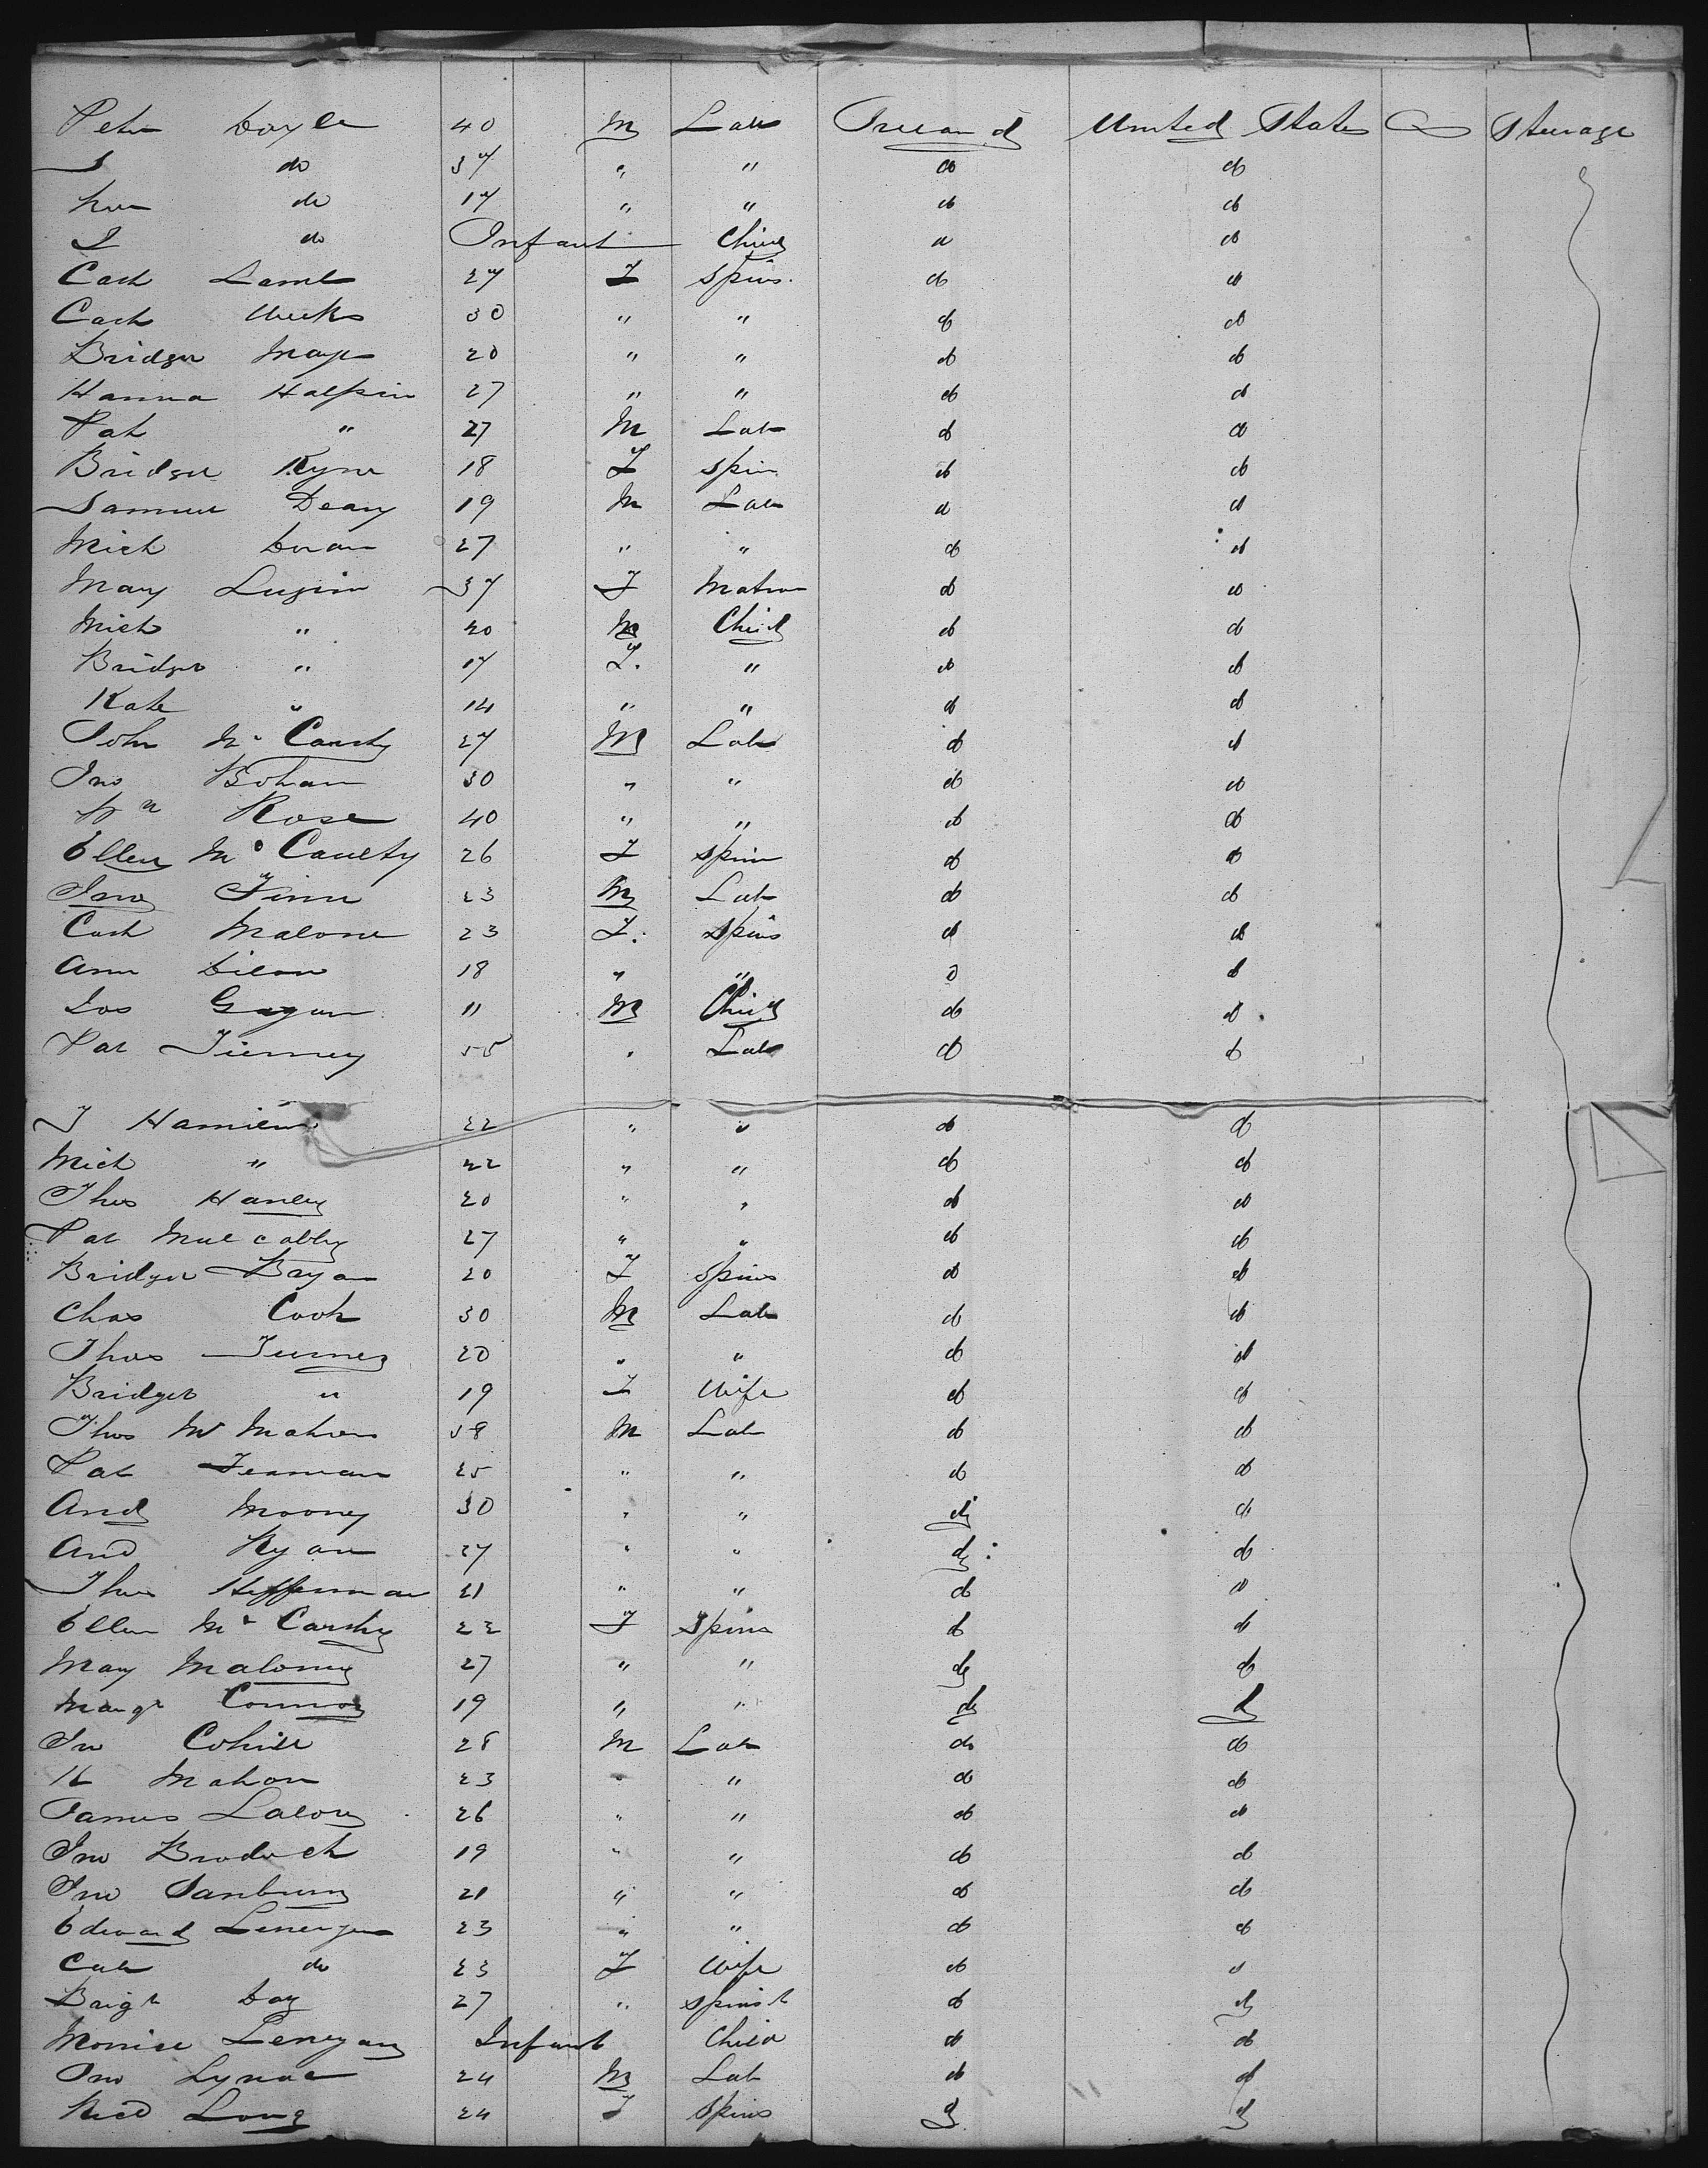 Peter Doyle 40 M Lab Ireland United States Steerage
do 37 " " do do
do 17 " " do do
J do Infant Child do do
Cath Lamb 27 F Spins. do do
Cath Weeks 30 " " do do
Bridget Mayo 20 " " do do
Hanna Halpin 27 " " do do
Pat " 27 M Lab do do
Bridget Kyne 18 F Spin do do
Samuel Deary 19 M Lab do do
Mich Doran 27 " " do do
Mary 37 F Matron do do
Mich " 20 M Child do do
Bridget " 17 F. " do do
Kate " 14 " " do do
John Mc Carthy 27 M Lab do do
Jno Bohan 30 " " do do
Wm Rose 40 " " do do
Ellen Mc Caulty 26 F Spin do do
Jno Finn 23 M Lab do do
Cath Malone 23 F. Spins do do
Ann Dilon 18 " " do do
Jos Gagan 11 M Child do do
Pat Tierney 55 " Lab do do
J 22 " " do do
Mich " 22 " " do do
Thos Hanley 20 " " do do
Pat Mulcabby 27 " " do do
Bridget Bryan 20 F Spins do do
Chas Cook 30 M Lab do do
Thos 20 " " do do
Bridget " 19 F Wife do do
Thos Mc Mahon 58 M Lab do do
Pat 25 " " do do
And Mooney 30 " " do do
And Ryan 27 " " do do
Thos Heffernan 21 " " do do
Ellen Mc Carthy 22 F Spins do do
Mary Maloney 27 " " do do
Margt Connor 19 " " do do
Jno Cohill 28 M Lab do do
Mahon 23 " " do do
James Lalory 26 " " do do
Jno Brodock 19 " " do do
Jno Sanbury 21 " " do do
Edward Lenergan 23 " " do do
Cath do 23 F Wife do do
Brigt Day 27 " Spinst do do
Lenegan Infant Child do do
Jno 24 M Lab do do
Long 24 F Spins do do